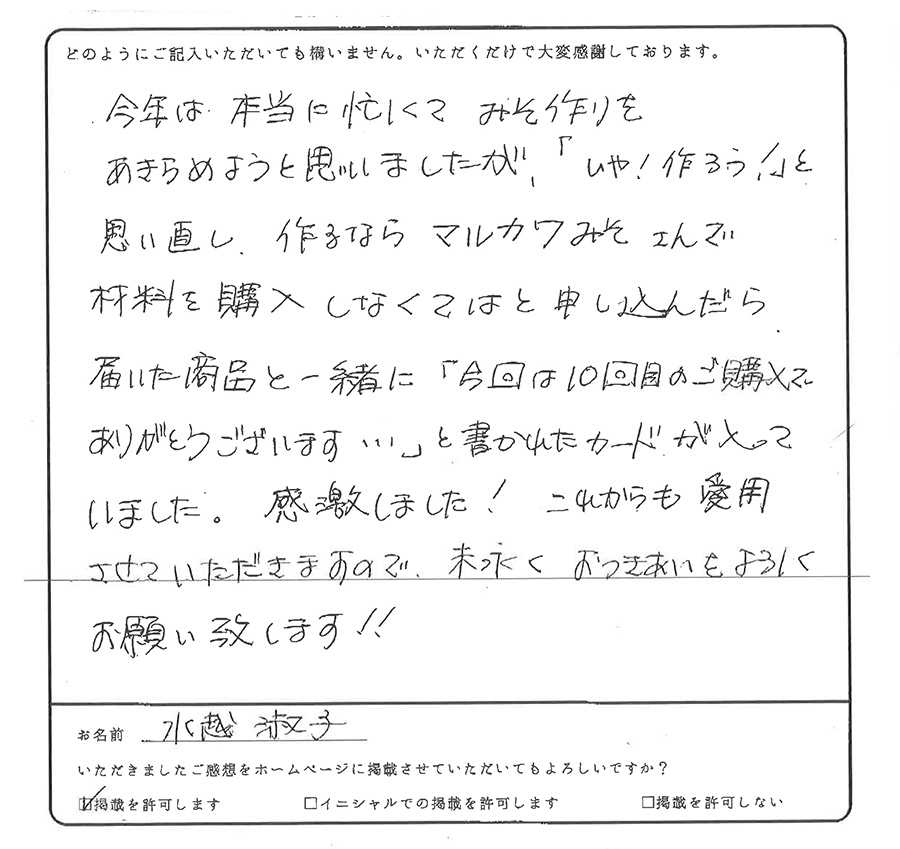 どのようにご記入いただいても構いません。いただくだけで大変感謝しております。
今年は 本当に忙しくて みそ作りを
あきらめようと思いましたが、「いや!作ろう!」と
思い直し、作るなら マルカワみそ さんで
材料を購入 しなくてはと 申し込んだら
届いた商品と一緒に「今回は10回目のご購入で
ありがとうございます…」と書かれたカードが入って
いました。 感激しました! これからも 愛用
させていただきますので、末永く おつきあいをよろしく
お願い致します!!
お名前 水越 淑子
いただきましたご感想をホームページに掲載させていただいてもよろしいですか?
☑掲載を許可します □イニシャルでの掲載を許可します □掲載を許可しない